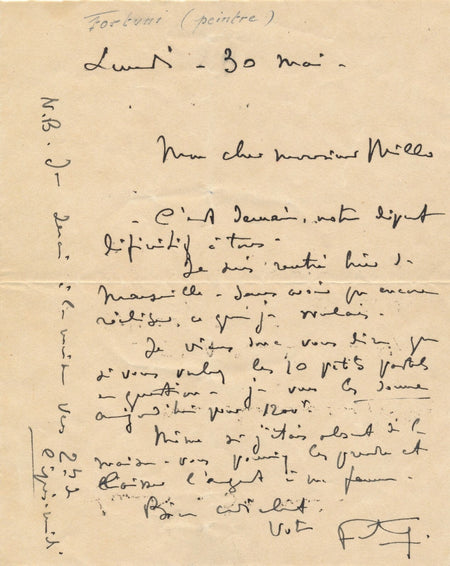 Fortuni (peintre)
Lundi - 30 Mai -
Mon cher monsieur Millo
- C'est demain, notre départ
définitif à tous -
Je suis rentré hier de
Marseille - sans avoir pu encore
réaliser ce que je voulais.
Je viens donc vous dire que
si vous voulez les 10 petits pastels
en question - je vous les donne
aujourd'hui pour
Même si j'étais absent de la
maison - vous pourriez les prendre et
laisser l'argent à ma femme -
Bien cordialement
Votre
N.B. Je serai à la maison vers 2h
l'après-midi